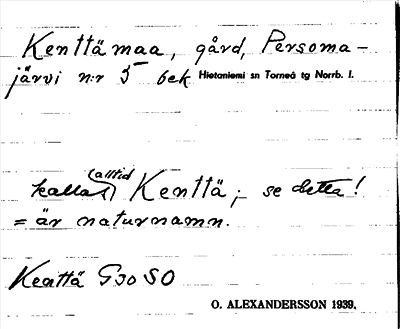 Kenttämaa, gård, Persoma-
järvi n:r 5 bek Hietaniemi sn Torneå tg Norrb. l.
(alltid
kallas) Kenttä; - se detta!
= är naturnamn.
Kenttä G30 SO
O. ALEXANDERSSON 1939.